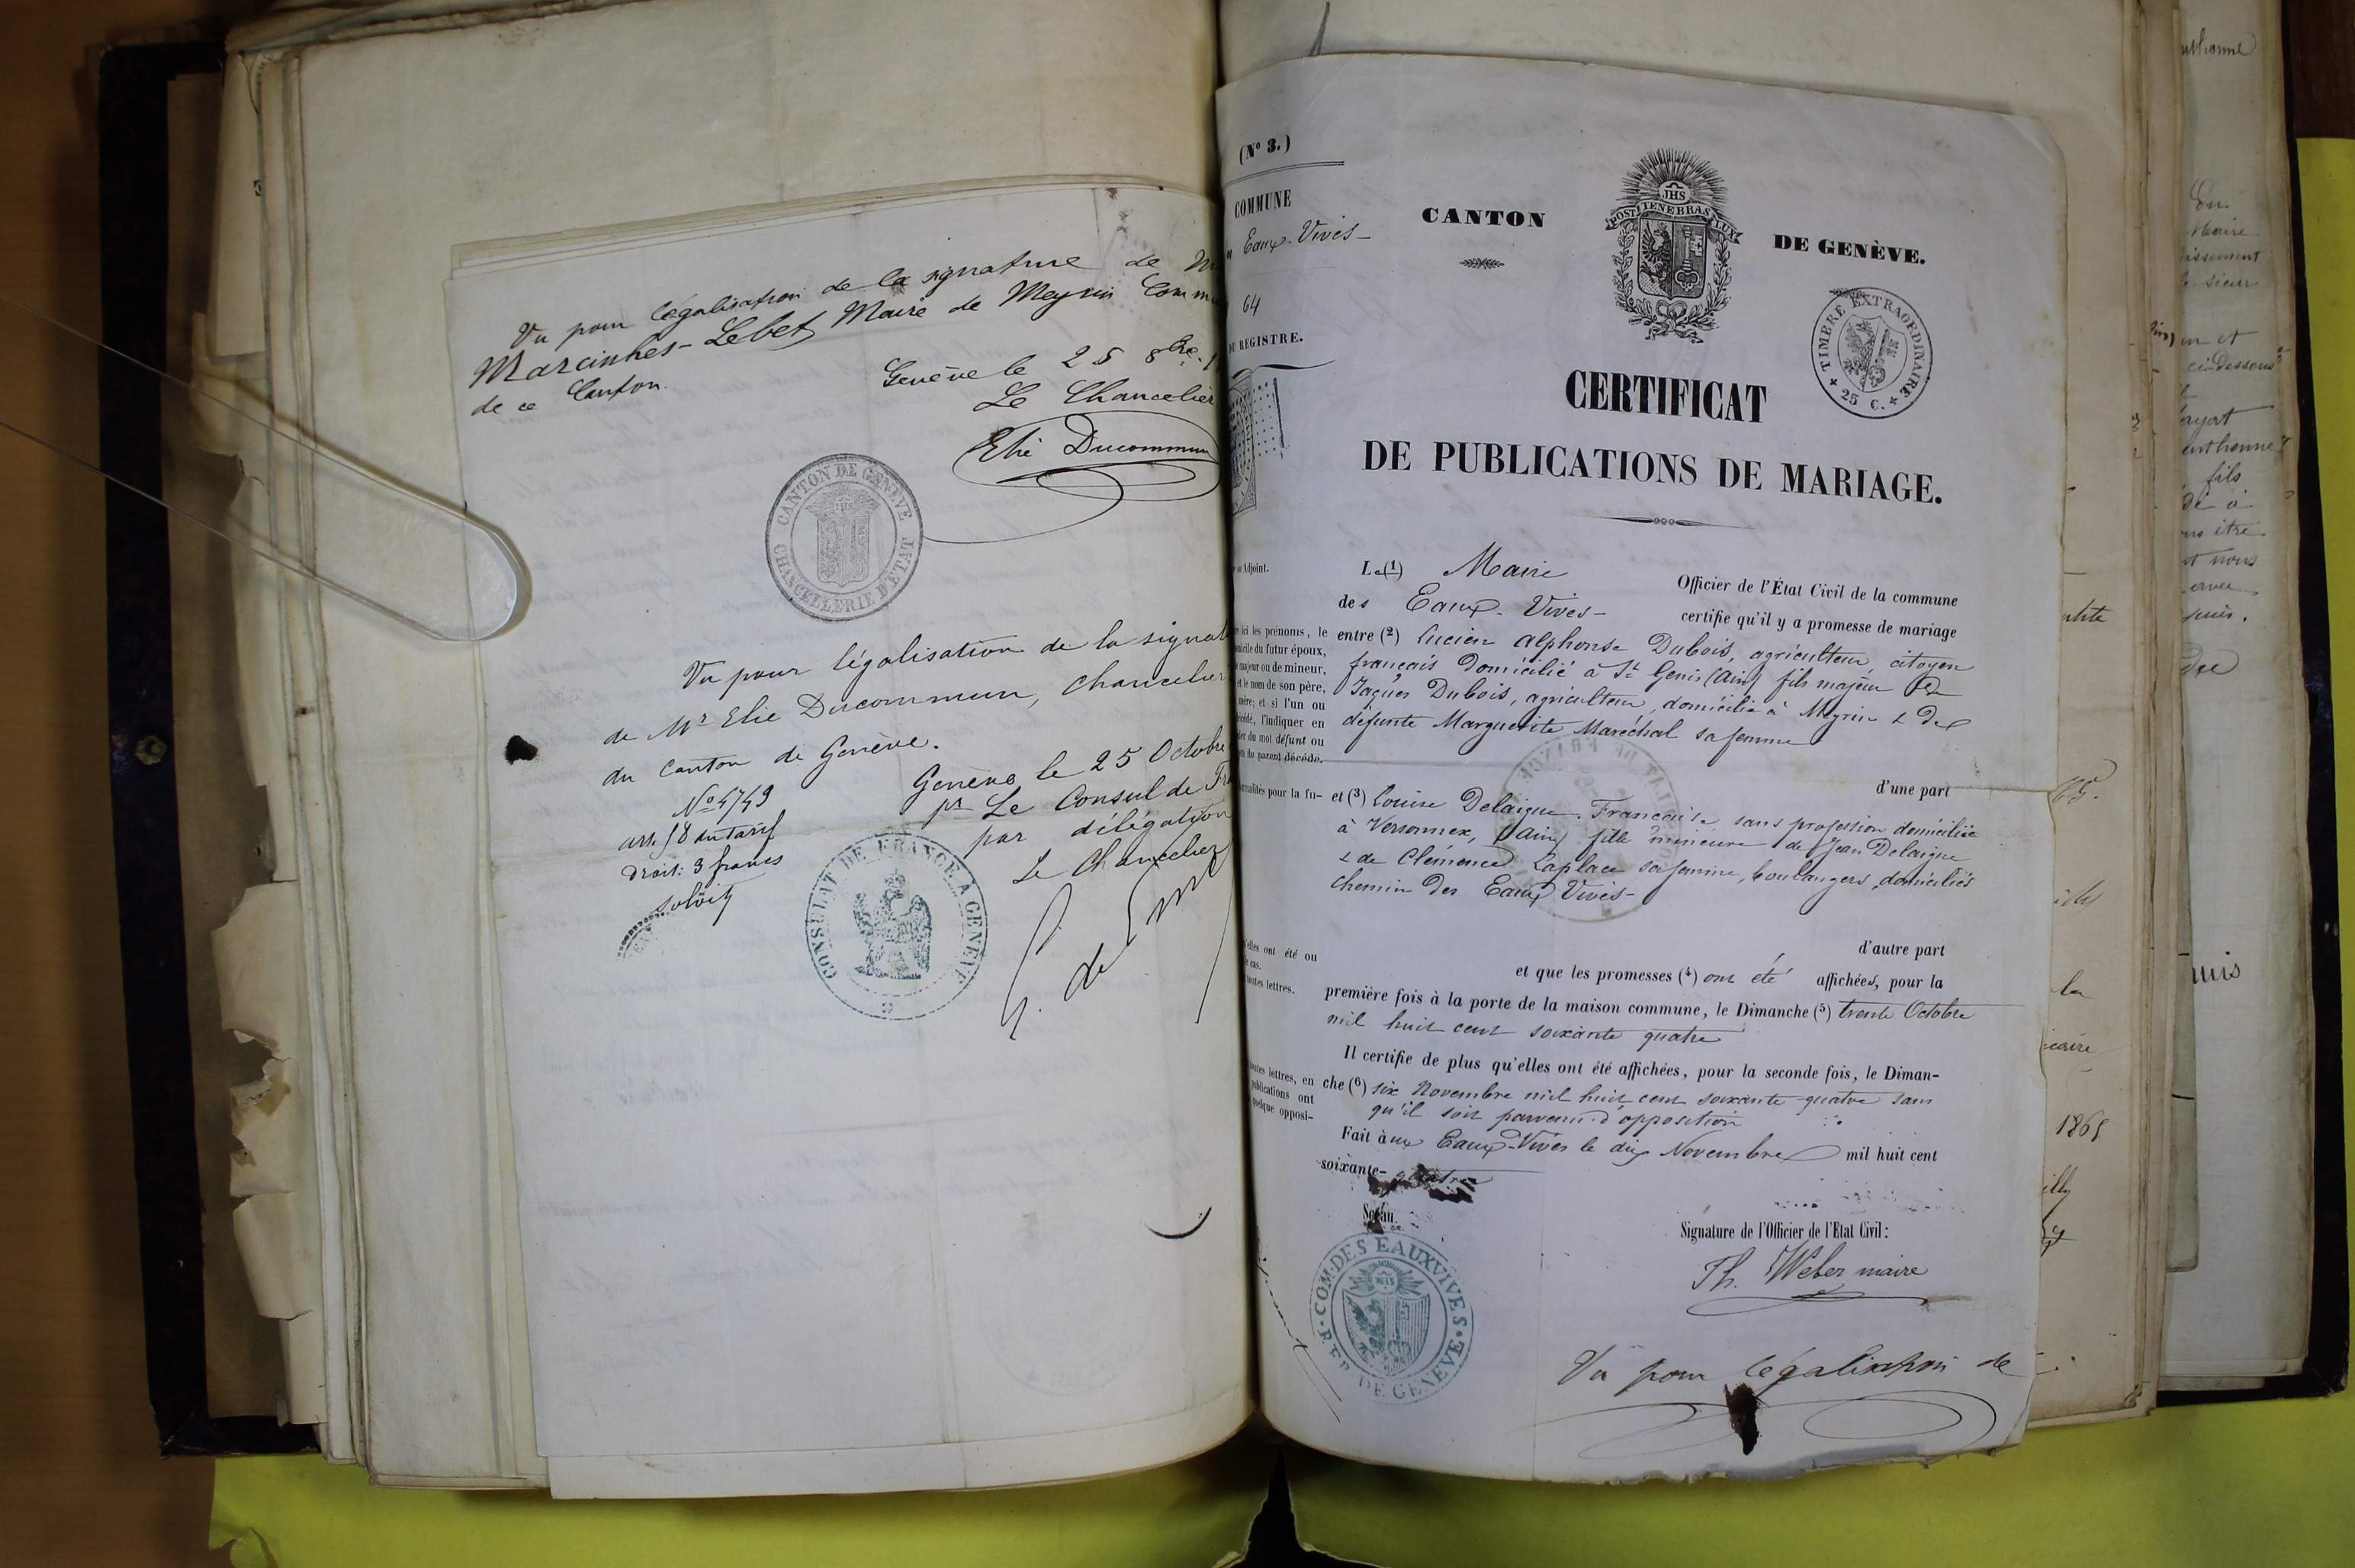 Vu pour légalisation de la signature de M
Marcinhes-Lebet Maire de Meyrin Comm
de ce Canton.
Genève le 25 8bre. 1
Le Chancelier
Elie Ducommun
CANTON DE GENEVE
CHANCELLERIE D'ETAT
Vu pour légalisation de la signat
de Mr Elie Ducommun, Chancelier
du Canton de Genève.
Genève le 25 Octobre
pr Le Consul de Fra
par délégation
Le Chancelier
No 4749
art. 58 du tarif
Droit: 3 francs
CONSULAT DE FRANCE A GENEVE
(No 3.)
COMMUNE
Eaux-Vives
64
DU REGISTRE.
CANTON
DE GENÈVE.
JHS
POST TENEBRAS LUX
TIMBRE EXTRAORDINAIRE
25 C.
CERTIFICAT
DE PUBLICATIONS DE MARIAGE.
ou Adjoint.
Le (1) Maire Officier de l'État Civil de la commune
des Eaux-Vives certifie qu'il y a promesse de mariage
entre (2) Lucien Alphonse Dubois, agriculteur, citoyen
français domicilié à St Genis (Ain) fils majeur de
Jaques Dubois, agriculteur, domicilié à Meyrin & de
défunte Marguerite Maréchal sa femme
ici les prénoms, le
domicile du futur époux,
majeur ou de mineur,
et le nom de son père,
mère; et si l'un ou
décédé, l'indiquer en
du mot défunt ou
du parent décédé.
d'une part
pour la fu-
et (3) Louise Delaigue. Française sans profession domiciliée
à Versonnex, (Ain) fille mineure de Jean Delaigue
& de Clémence Laplace sa femme, boulangers, domiciliés
chemin des Eaux Vives
d'autre part
elles ont été ou
cas.
toutes lettres.
et que les promesses (4) ont été affichées, pour la
première fois à la porte de la maison commune, le Dimanche (5) trente Octobre
mil huit cent soixante quatre
Il certifie de plus qu'elles ont été affichées, pour la seconde fois, le Diman-
che (6) six Novembre mil huit cent soixante-quatre sans
qu'il soit parvenu d'opposition
toutes lettres, en
publications ont
quelque opposi-
Fait aux Eaux-Vives le dix Novembre mil huit cent
soixante-quatre
Sceau.
Signature de l'Officier de l'Etat Civil:
Th. Weber maire
COM: DES EAUX VIVES
REP. DE GENEVE
Vu pour légalisation de
1865